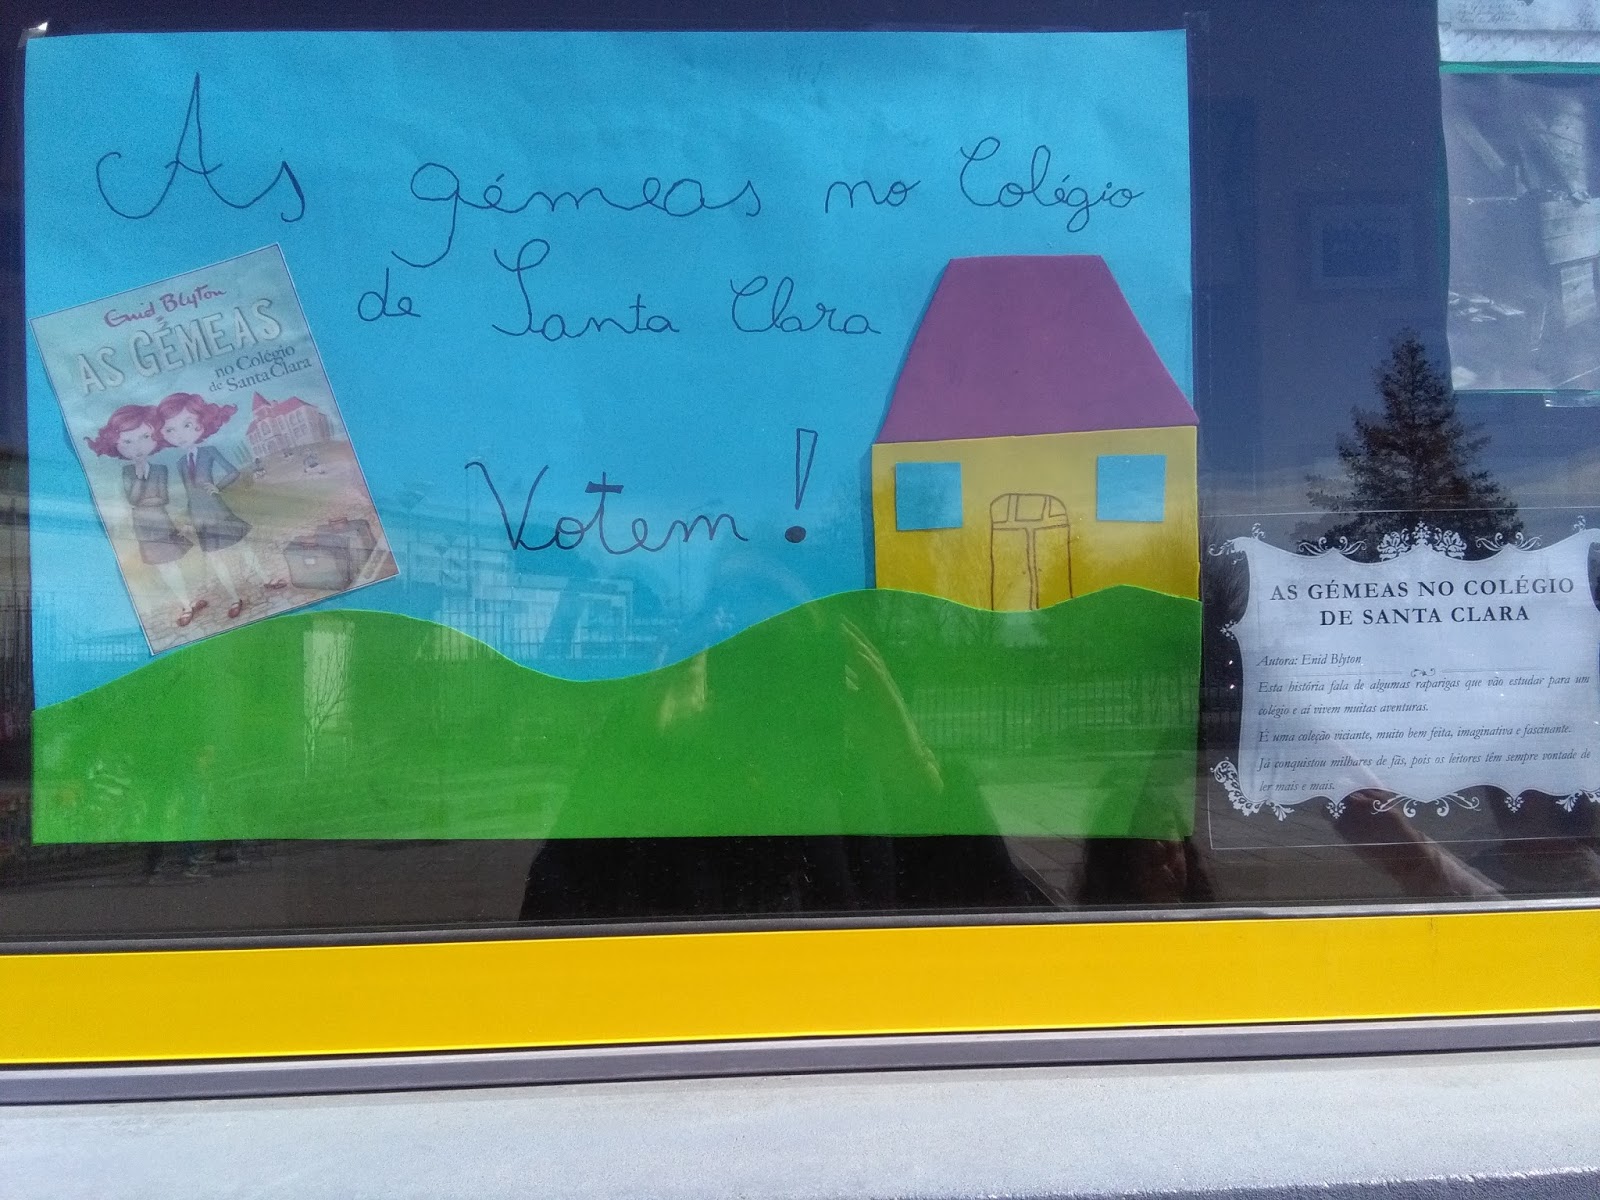 As gémeas no Colégio
de Santa Clara
Votem!
Enid Blyton
AS GÉMEAS
no Colégio
de Santa Clara
AS GÉMEAS NO COLÉGIO
DE SANTA CLARA
Autora: Enid Blyton
Esta história fala de algumas raparigas que vão estudar para um
colégio e aí vivem muitas aventuras.
É uma coleção viciante, muito bem feita, imaginativa e fascinante.
Já conquistou milhares de fãs, pois os leitores têm sempre vontade de
ler mais e mais.